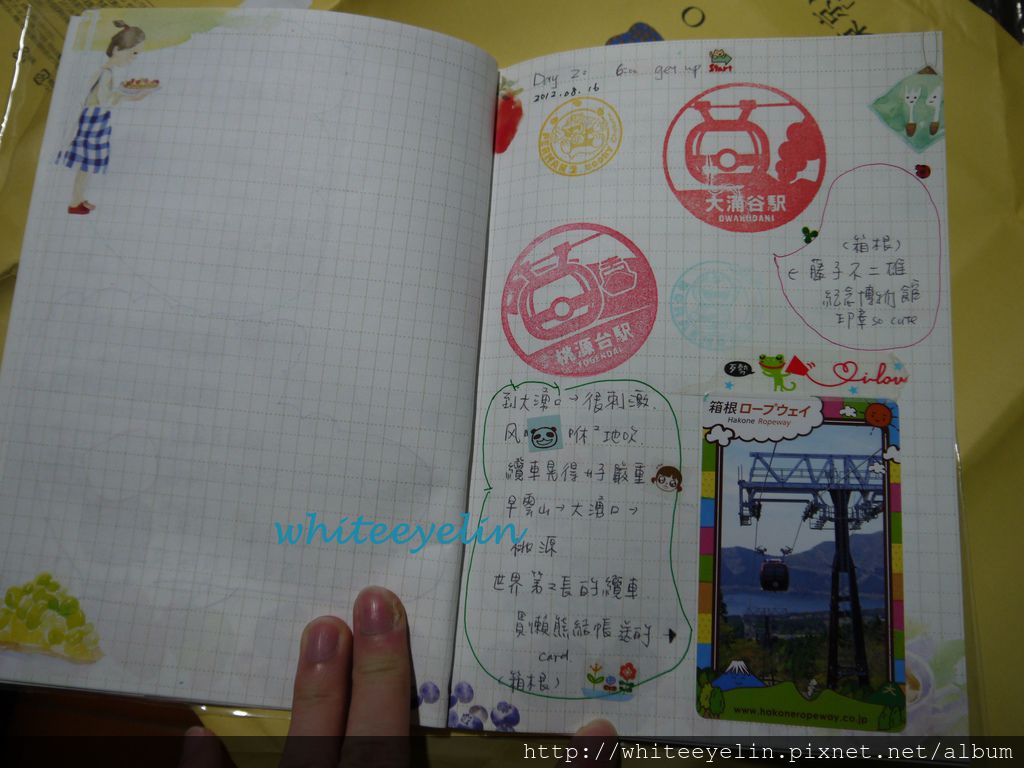 Day 2: 6:00 get up start
2012.08.16
大涌谷駅
OWAKUDANI
(箱根)
← 藤子不二雄
紀念博物館
印章 so cute
桃源台駅
TOGENDAI
歹勢
i lov
到大湧口→很刺激.
风 咻²地吹.
纜車晃得好嚴重
早雲山→大湧口→
桃源
世界第2長的纜車
買懶熊結帳送的
card.
(箱根)
箱根ロープウェイ
Hakone Ropeway
www.hakoneropeway.co.jp
whiteeyelin
http://whiteeyelin.pixnet.net/album